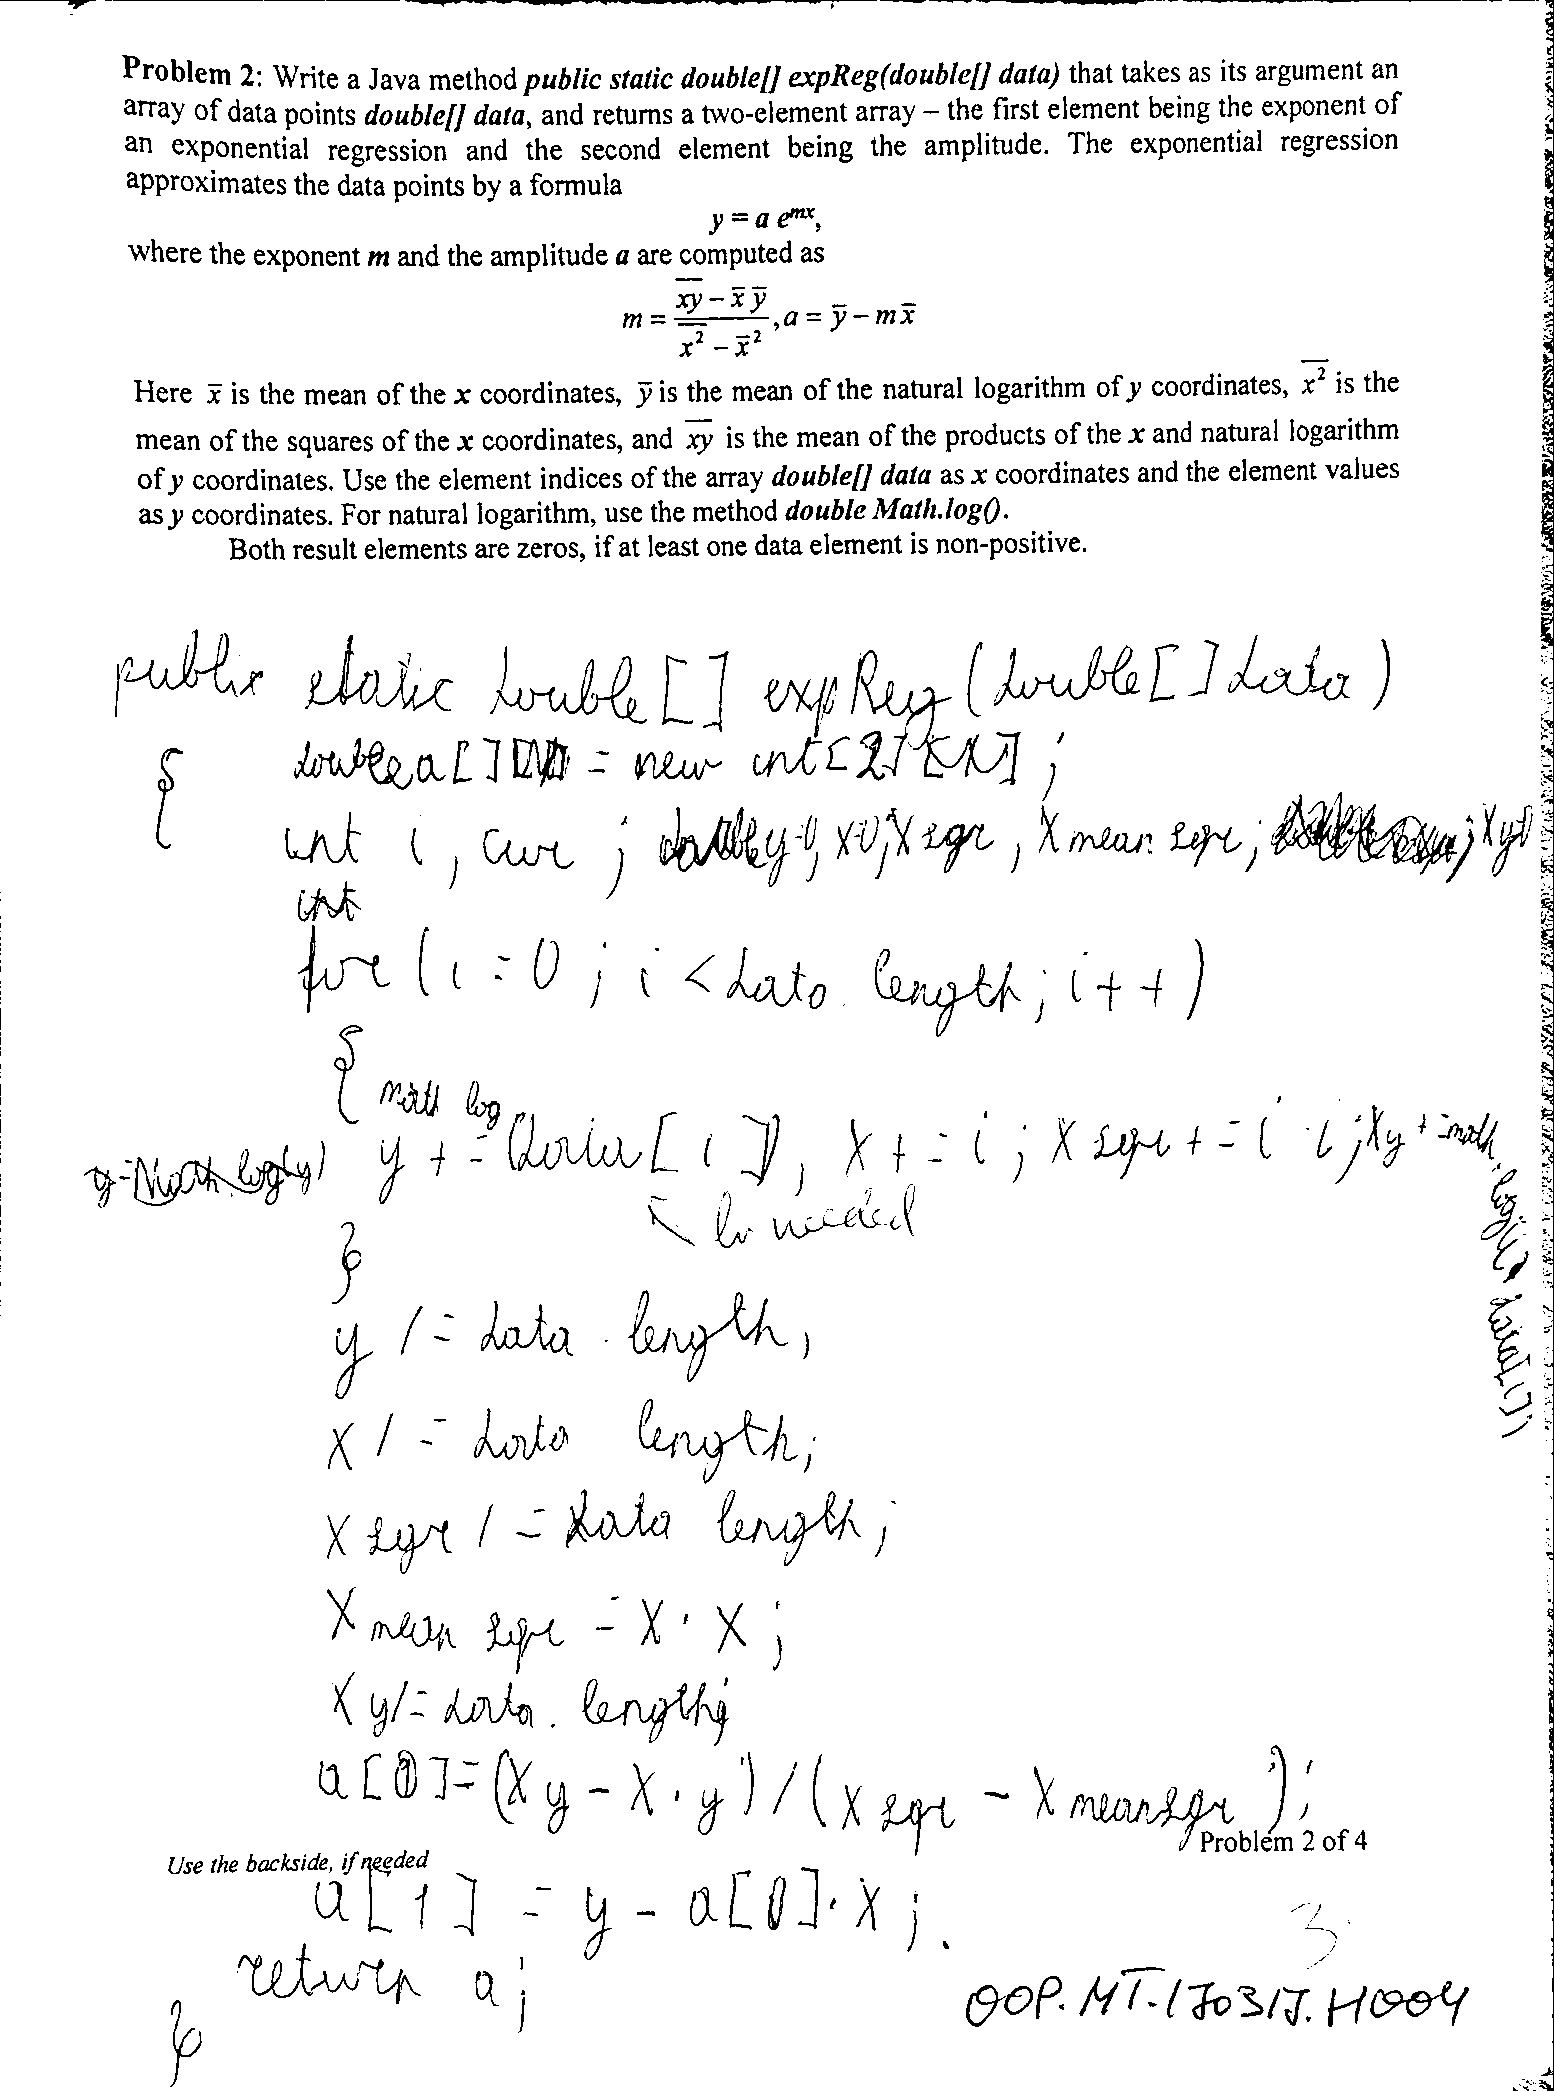 Problem 2: Write a Java method public static double[] expReg(double[] data) that takes as its argument an
array of data points double[] data, and returns a two-element array – the first element being the exponent of
an exponential regression and the second element being the amplitude. The exponential regression
approximates the data points by a formula
y = a e^{mx},
where the exponent m and the amplitude a are computed as
m = \frac{\overline{xy} - \bar{x}\,\bar{y}}{\overline{x^2} - \bar{x}^2}, a = \bar{y} - m\bar{x}
Here x̄ is the mean of the x coordinates, ȳ is the mean of the natural logarithm of y coordinates, \overline{x^2} is the
mean of the squares of the x coordinates, and \overline{xy} is the mean of the products of the x and natural logarithm
of y coordinates. Use the element indices of the array double[] data as x coordinates and the element values
as y coordinates. For natural logarithm, use the method double Math.log().
Both result elements are zeros, if at least one data element is non-positive.
public static double[] expReg(double[] data)
{ double a[] = new int[2];
int i, cur; double y=0, x=0, xsqr, xmeansqr; xy=0
int
for (i=0; i<data.length; i++)
{
math log
y += (data[i]), x+=i; xsqr+=i·i; xy+=math.log(i· data[i]);
ln needed
}
y /= data.length;
x /= data length;
xsqr /= data length;
xmean sqr = x·x;
xy /= data.length;
a[0]=(xy-x·y)/(xsqr - xmeansqr);
Problem 2 of 4
Use the backside, if needed
a[1] = y - a[0]·x;
3
return a;
OOP.MT.170317.H004
}